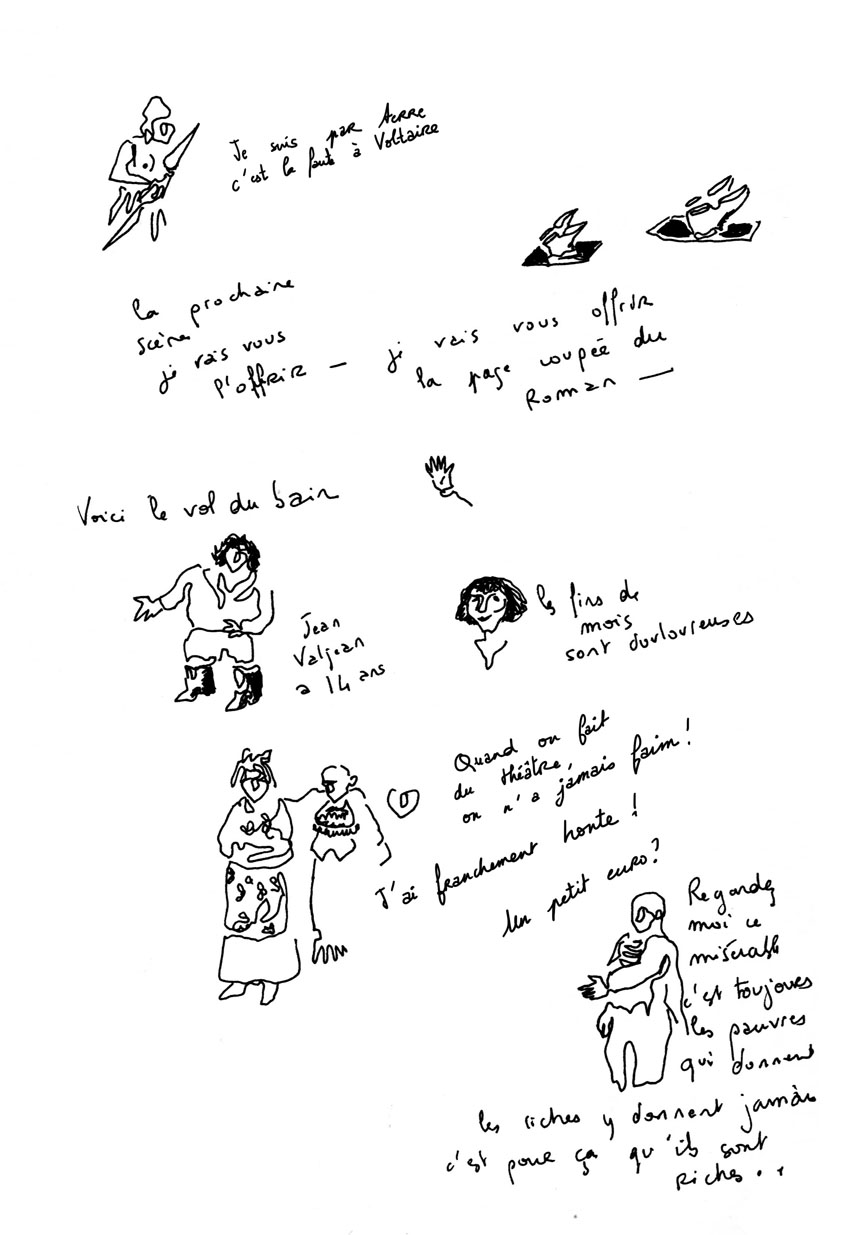 Je suis par terre
c'est la faute à Voltaire
la prochaine
scène
je vais vous
l'offrir —
je vais vous offrir
la page coupée du
Roman —
Voici le vol du bain
Jean
Valjean
a 14 ans
les fins de
mois
sont douloureuses
Quand on fait
du théâtre,
on n'a jamais faim !
J'ai franchement honte !
Un petit euro ?
Regardez
moi ce
misérable
c'est toujours
les pauvres
qui donnent
les riches y donnent jamais
c'est pour ça qu'ils sont
Riches . .